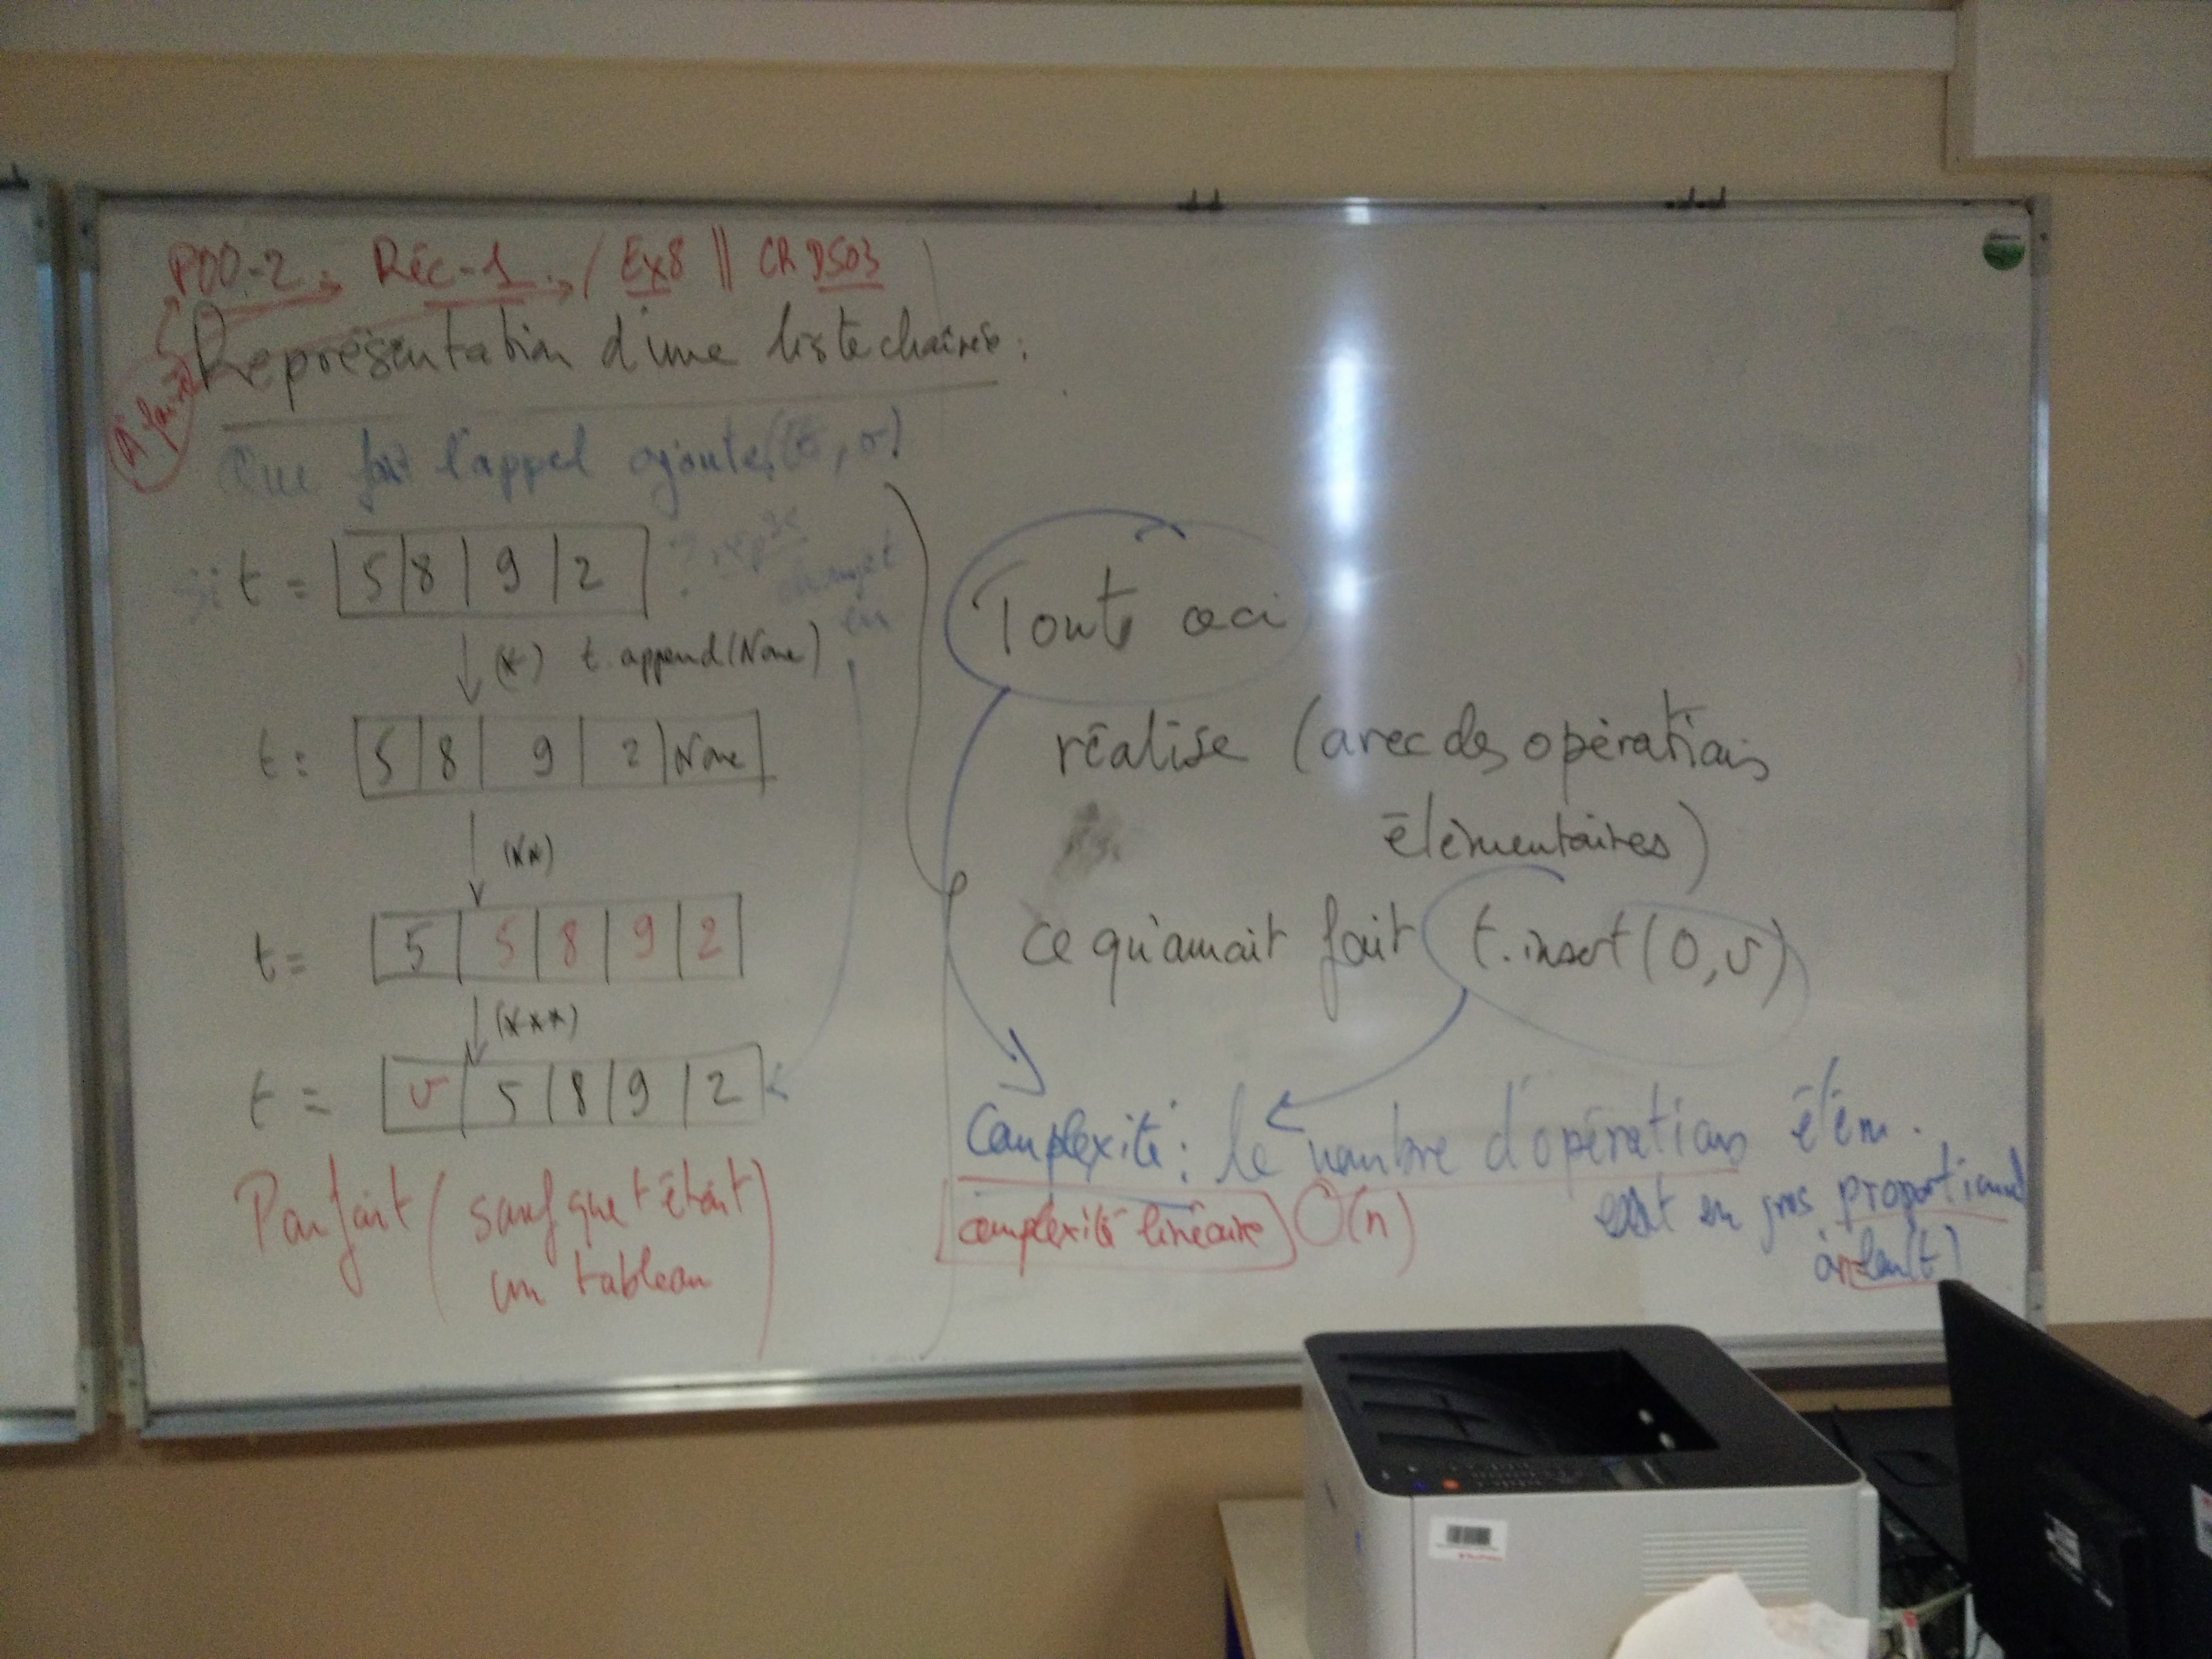 POO-2 → Réc-1 → / Ex8 || CR DS03
À faire
Représentation d'une liste chaînée :
Que fait l'appel ajoute(t, v)
si t = |5|8|9|2| ?
est
changé
en
(*) t.append(None)
t = |5|8|9|2|None|
(**)
t = |5|5|8|9|2|
(***)
t = |v|5|8|9|2|
Parfait (sauf que t était
un tableau)
Tout ceci
réalise (avec des opérations
élémentaires)
ce qu'aurait fait t.insert(0,v)
Complexité : le nombre d'opérations élém.
est en gros proportionnel
à len(t)
complexité linéaire O(n)